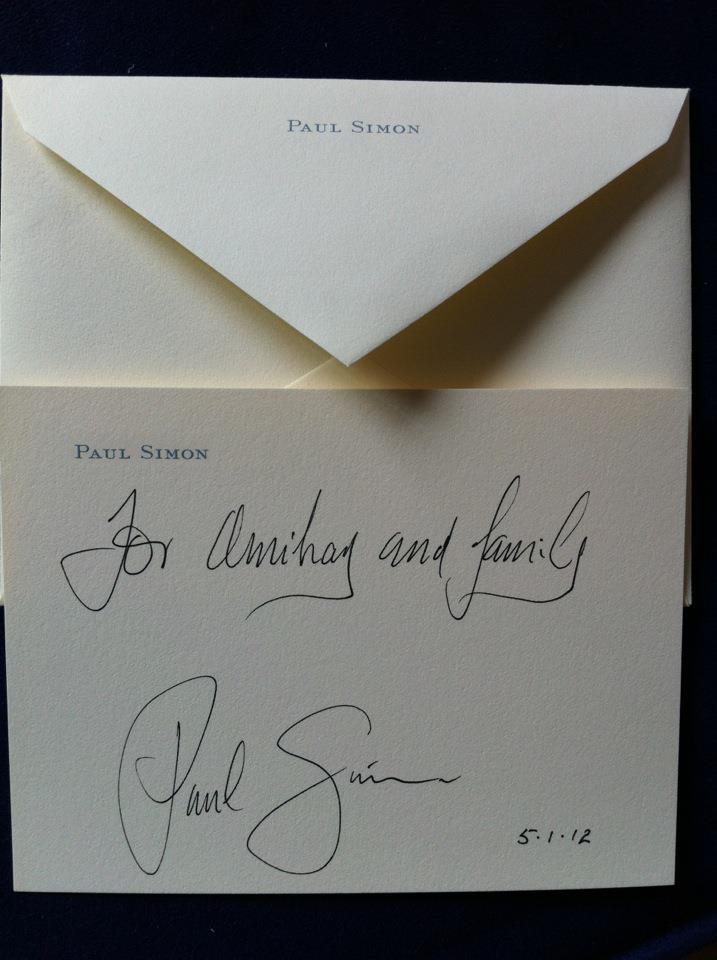 PAUL SIMON
PAUL SIMON
For Amihay and family
Paul Simon
5.1.12